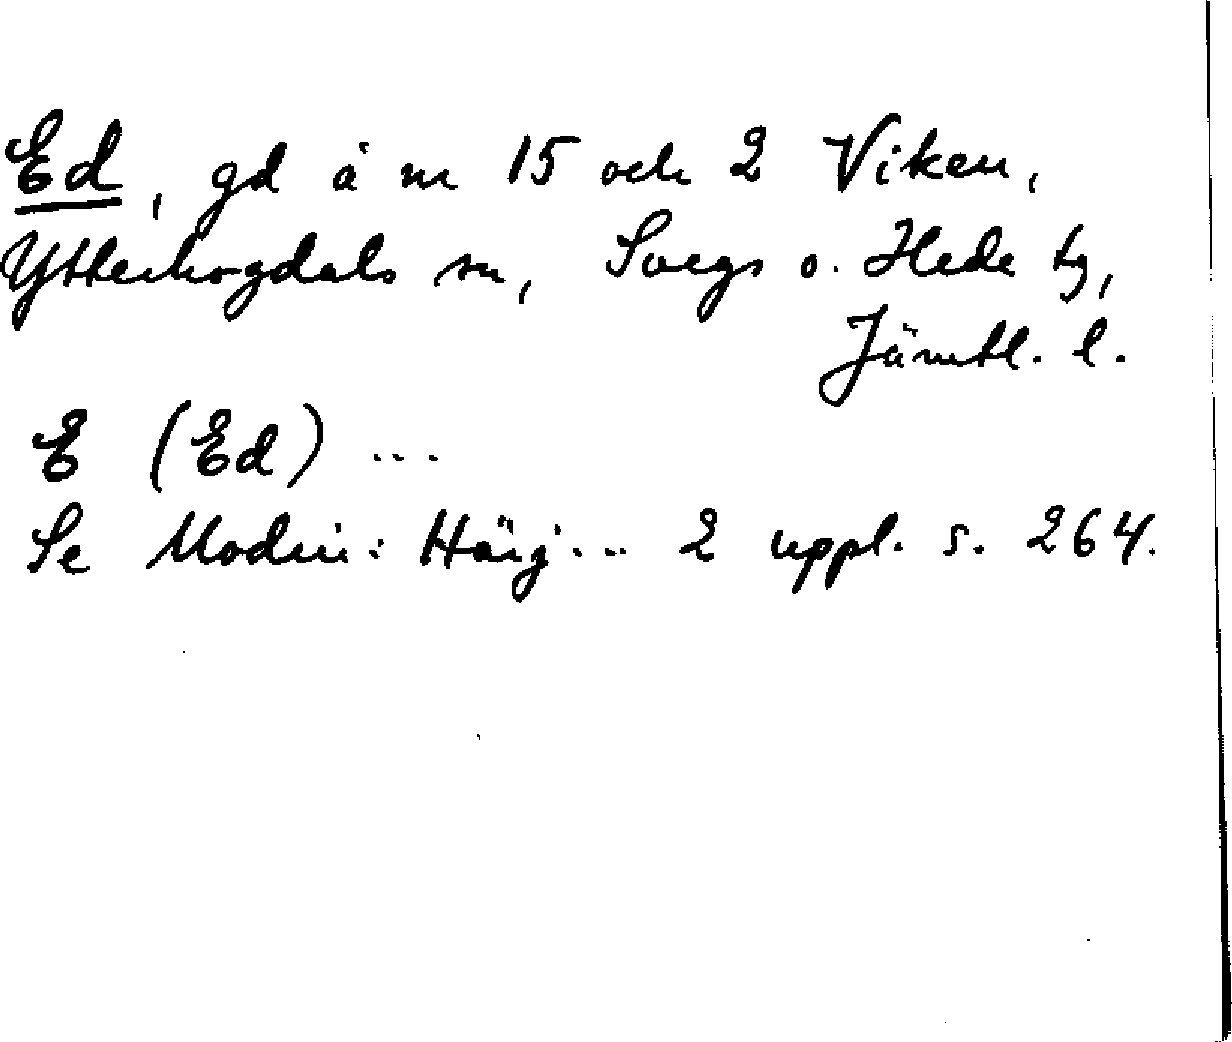 Ed, gd å nr 15 och 2 Viken,
Ytterhogdals sn, Svegs o. Hede tg,
Jämtl. l.
E (Ed) ...
Se Modin: Härj... 2 uppl. s. 264.